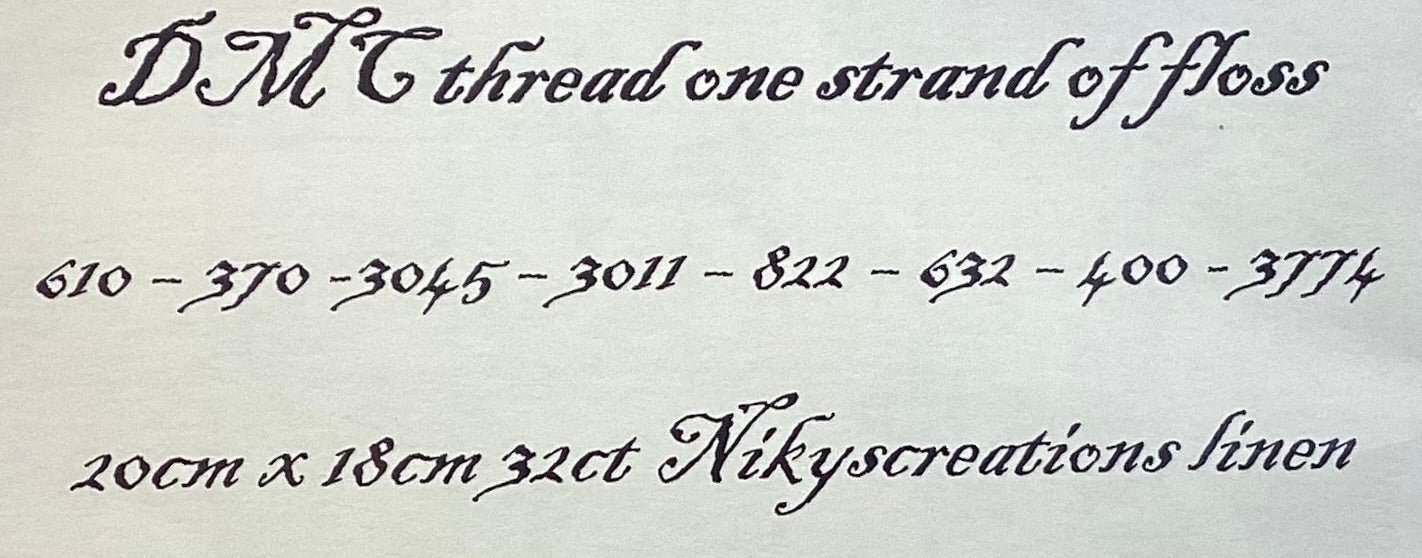 DMC thread one strand of floss
610 - 370 -3045 - 3011 - 822 - 632 - 400 - 3774
20cm x 18cm 32ct Nikyscreations linen